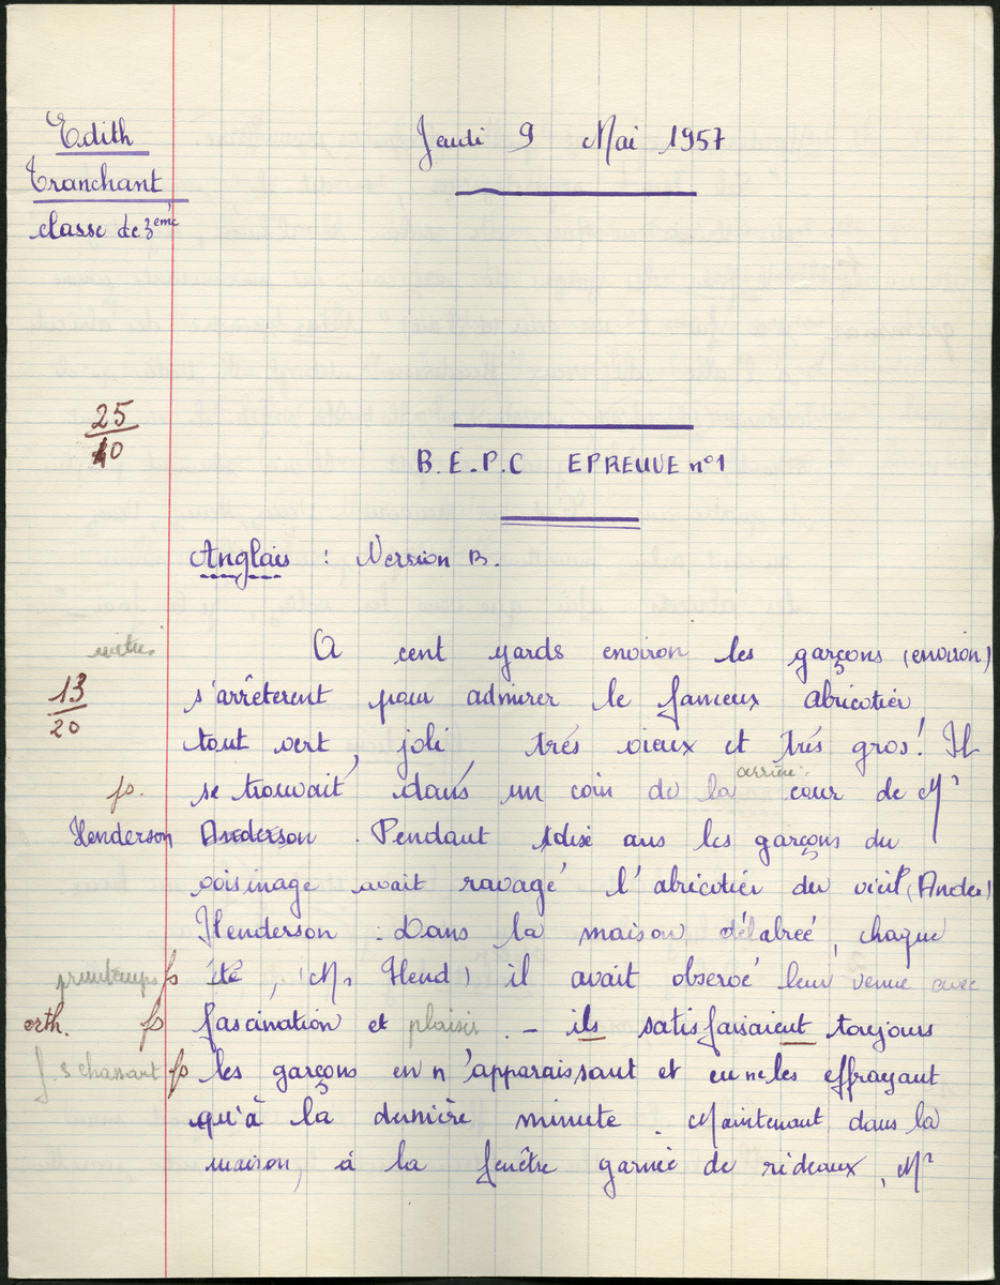 Edith
Tranchant
classe de 3ème
Jeudi 9 Mai 1957
25
40
B.E.P.C EPREUVE n°1
Anglais : Version B.
A cent yards environ les garçons (environ)
13
20
s'arrêterent pour admirer le fameux abricotier
tout vert, joli très vieux et très gros! Il
arrière.
fs. se trouvait dans un coin de la cour de Mr
Henderson Anderson. Pendant dix ans les garçons du
voisinage avait ravagé l'abricotier du vieil (Ander)
Henderson. Dans la maison délabreé, chaque
printemps fs été, (Mr Hend) il avait observé leur venue avec
orth. fs fascination et plaisir. - ils satisfaisaient toujours
chassant fs les garçons en n'apparaissant et en ne les effrayant
qu'à la dernière minute. Maintenant, dans la
maison, à la fenêtre garnie de rideaux, Mr